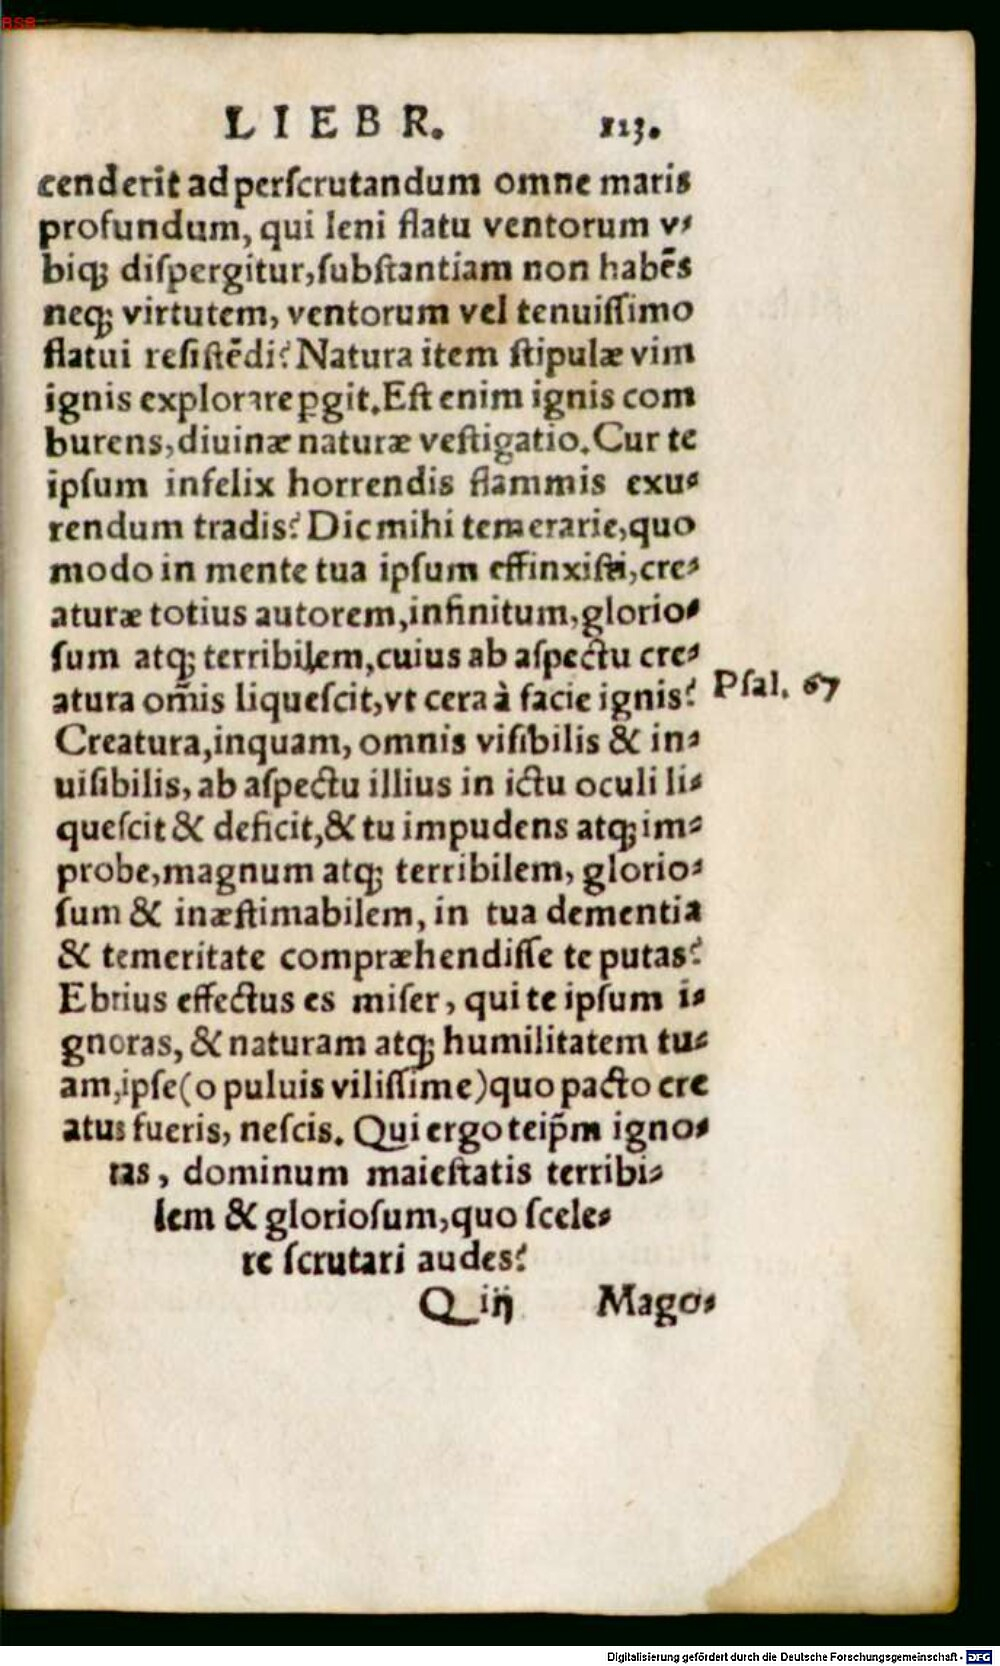 BSB
LIEBR. 113.
cenderit ad perſcrutandum omne maris
profundum, qui leni flatu ventorum v⸗
biq; diſpergitur, ſubſtantiam non habēs
neq; virtutem, ventorum vel tenuiſſimo
flatui reſiſtēdi? Natura item ſtipulæ vim
ignis explorare ꝑgit. Eſt enim ignis com
burens, diuinæ naturæ veſtigatio. Cur te
ipſum infelix horrendis flammis exu⸗
rendum tradis? Dic mihi temerarie, quo
modo in mente tua ipſum effinxiſti, cre⸗
aturæ totius autorem, infinitum, glorio⸗
ſum atq; terribilem, cuius ab aſpectu cre⸗
atura om̄is liqueſcit, vt cera à facie ignis? Pſal. 67
Creatura, inquam, omnis viſibilis & in⸗
uiſibilis, ab aſpectu illius in ictu oculi li⸗
queſcit & deficit, & tu impudens atq; im⸗
probe, magnum atq; terribilem, glorio⸗
ſum & inæſtimabilem, in tua dementia
& temeritate compræhendiſſe te putas?
Ebrius effectus es miſer, qui te ipſum i⸗
gnoras, & naturam atq; humilitatem tu⸗
am, ipſe (o puluis viliſſime) quo pacto cre
atus fueris, neſcis. Qui ergo teip̄m igno⸗
ras, dominum maieſtatis terribi⸗
lem & glorioſum, quo ſcele⸗
re ſcrutari audes?
Q iij Mago⸗
Digitalisierung gefördert durch die Deutsche Forschungsgemeinschaft - DFG